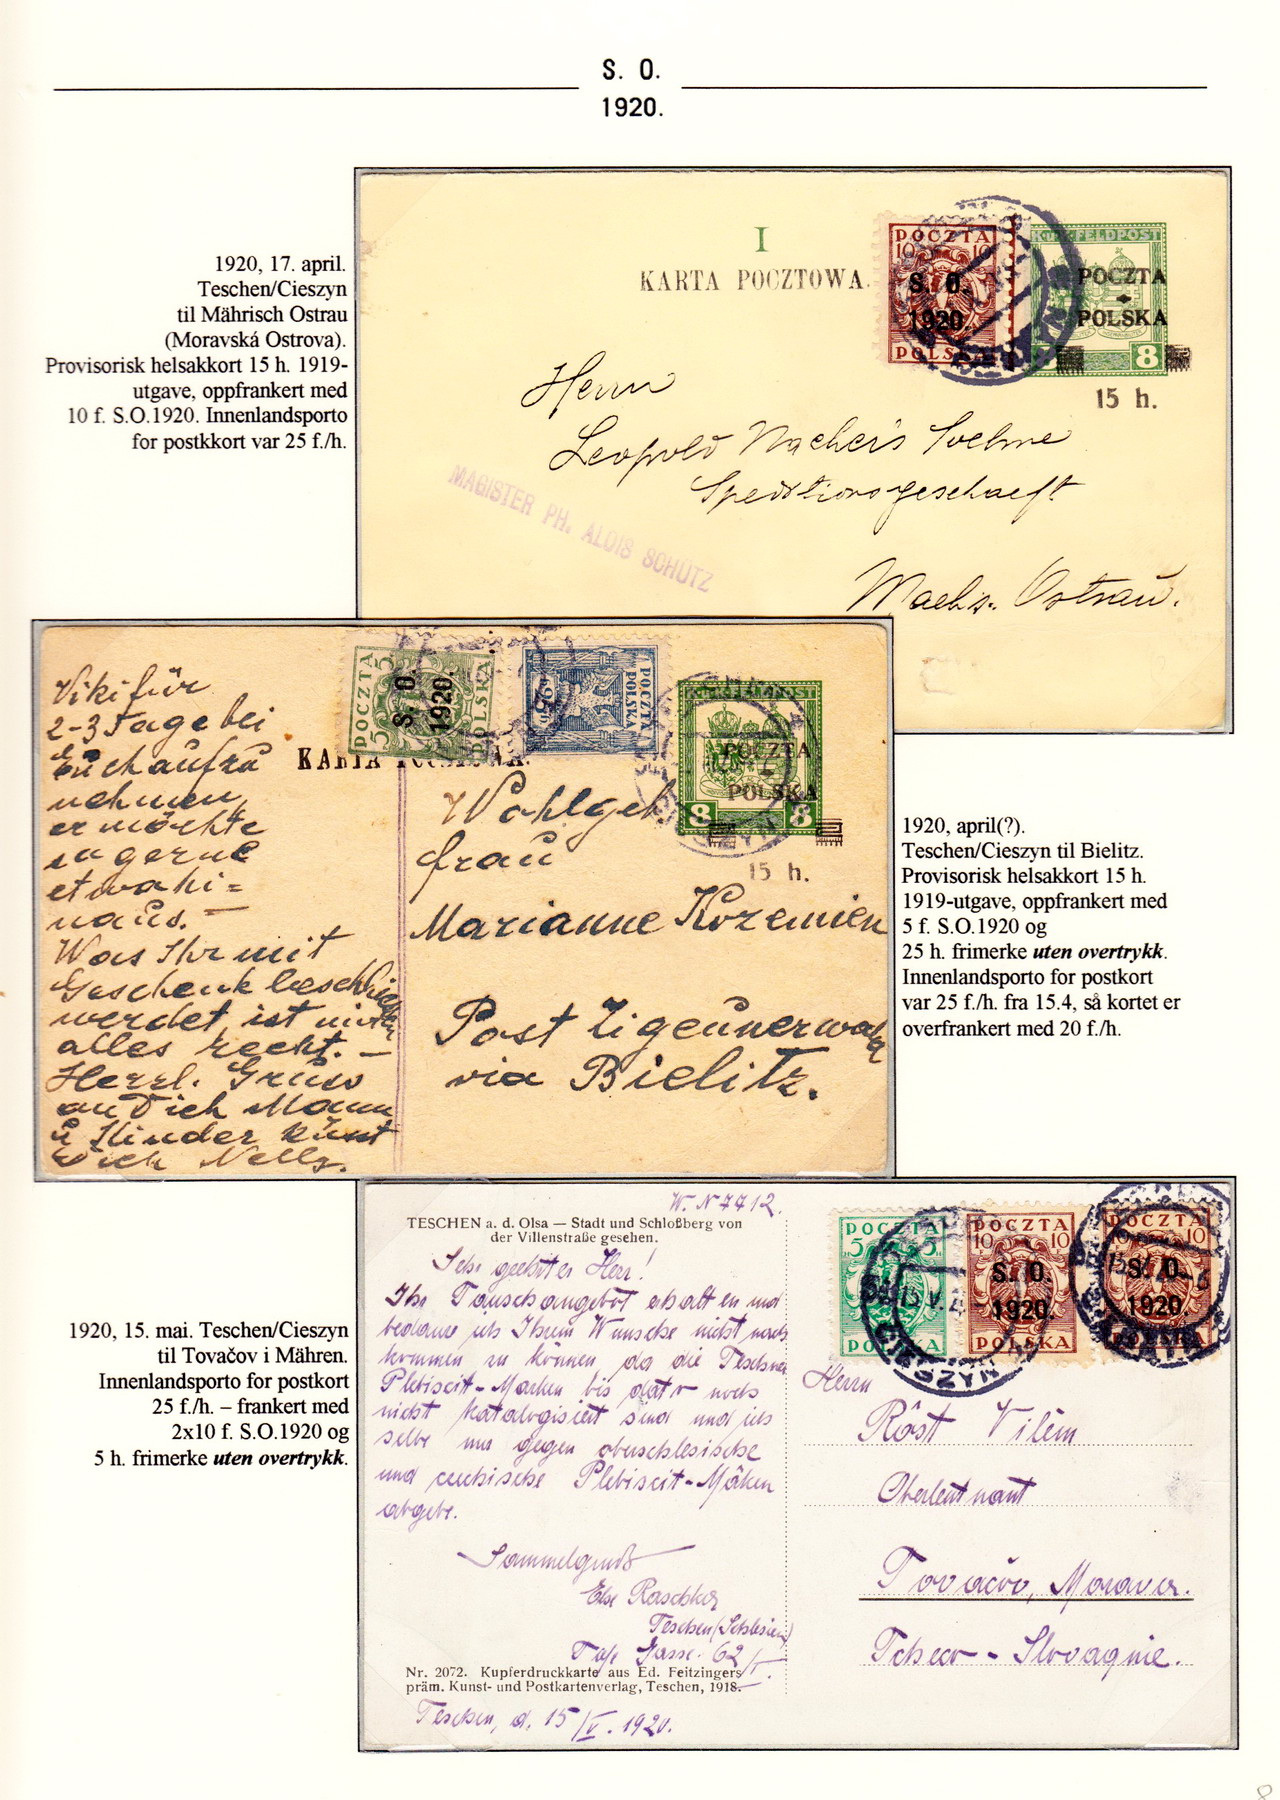 S. O.
1920.
1920, 17. april.
Teschen/Cieszyn
til Mährisch Ostrau
(Moravská Ostrova).
Provisorisk helsakkort 15 h. 1919-
utgave, oppfrankert med
10 f. S.O.1920. Innenlandsporto
for postkkort var 25 f./h.
I
KARTA POCZTOWA.
POCZTA
10 10
S. O.
1920
POLSKA
K.u.K. FELDPOST
POCZTA
POLSKA
8
15 h.
Herrn
Leopold Nacher's Soehne
Speditionsgeschaeft
Maehr. Ostrau.
MAGISTER PH. ALOIS SCHÜTZ
Viki für
2-3 Tage bei
Euch aufzu
nehmen,
er möchte
so gerne
etwas hi=
naus. —
Was Ihr mit
Geschenk beschlossen
werdet, ist mir
alles recht. —
Herzl. Gruss
an Dich Mann
u Kinder küsst
Dich Nelly.
KARTA POCZTOWA.
POCZTA
5 5
S. O.
1920.
POLSKA
POCZTA
POLSKA
25
POCZTA
POLSKA
8 8
15 h.
Wohlgeb
Frau
Marianne Kozemien
Post Zigeunerwald
via Bielitz.
1920, april(?).
Teschen/Cieszyn til Bielitz.
Provisorisk helsakkort 15 h.
1919-utgave, oppfrankert med
5 f. S.O.1920 og
25 h. frimerke uten overtrykk.
Innenlandsporto for postkort
var 25 f./h. fra 15.4, så kortet er
overfrankert med 20 f./h.
1920, 15. mai. Teschen/Cieszyn
til Tovačov i Mähren.
Innenlandsporto for postkort
25 f./h. – frankert med
2x10 f. S.O.1920 og
5 h. frimerke uten overtrykk.
W. N 7712.
TESCHEN a. d. Olsa — Stadt und Schloßberg von
der Villenstraße gesehen.
Sehr geehrter Herr!
Ihr Tauschangebot erhalten und
bedaure ich Ihrem Wunsche nicht nach
kommen zu können, da die Teschner
Plebiscit-Marken bis dato noch
nicht katalogisiert sind und ich
selbe nur gegen oberschlesische
und tschechische Plebiscit-Marken
abgebe.
Sammelgruß
Else Raschka
Teschen (Schlesien)
Gasse 62/I.
Nr. 2072. Kupferdruckkarte aus Ed. Feitzingers
präm. Kunst- und Postkartenverlag, Teschen, 1918.
Teschen, d. 15/V. 1920.
POCZTA
5 5
POLSKA
POCZTA
10 10
S. O.
1920.
POLSKA
POCZTA
10
S. O.
1920.
POLSKA
Herrn
Röst Vilém
Oberleutnant
Tovačov, Morava.
Tcheco - Slovaquie.
8